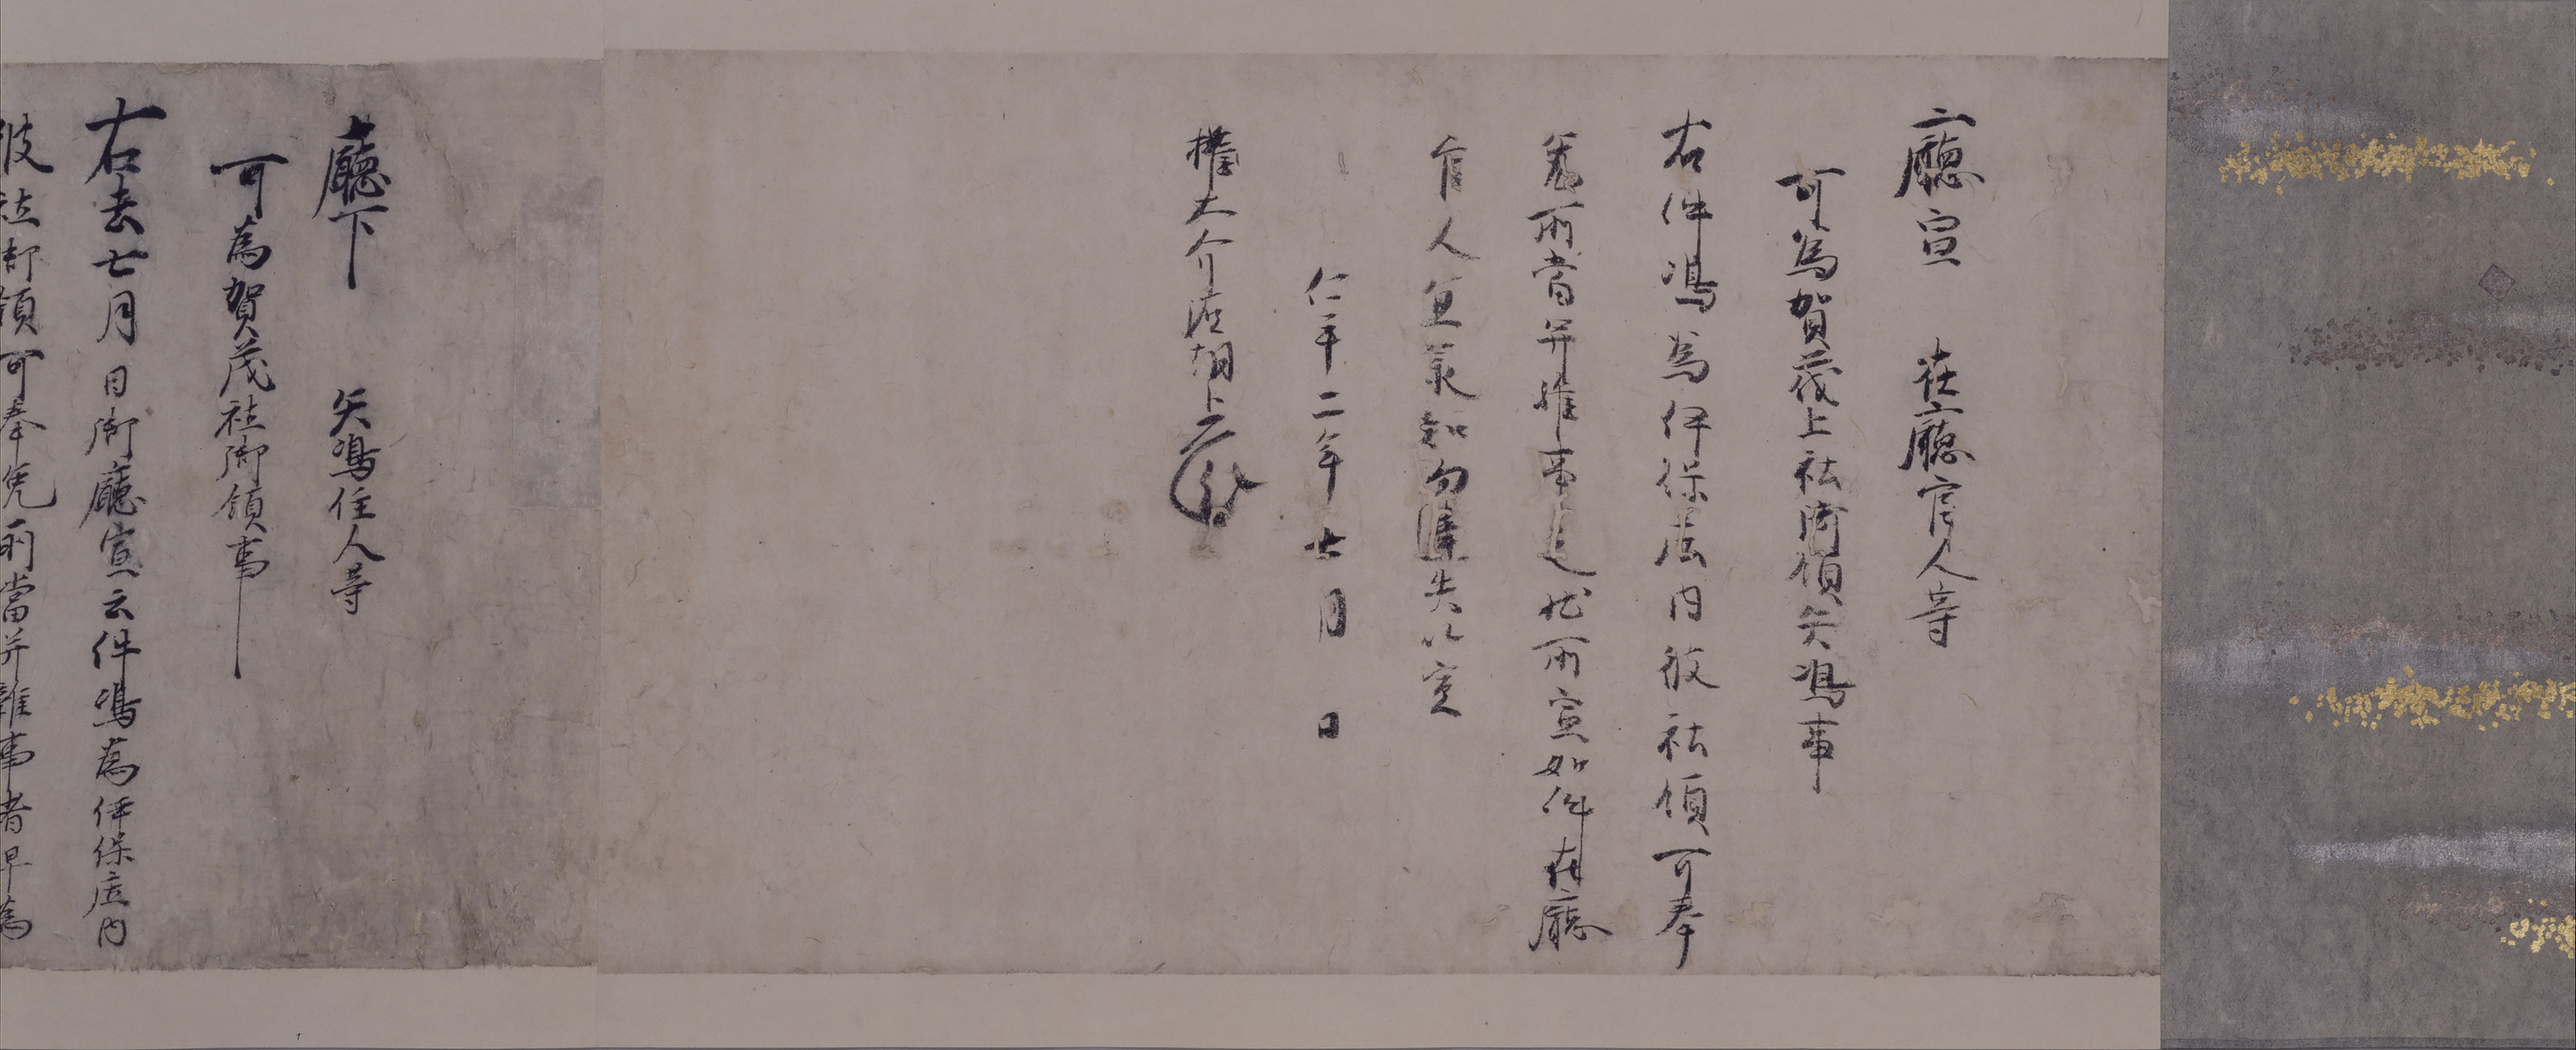 廳宣 在廳官人等
可為賀茂上社御領矢嶋事
右件嶋為伊保庄内彼社領可奉
免所當并雜事之状所宣如件在廳
官人宜承知勿違失以宣
仁平二年七月 日
權大介藤朝臣
廳下 矢嶋住人等
可為賀茂社御領事
右去七月日御廳宣云件嶋為伊保庄内
彼社御領可奉免所當并雜事者早為